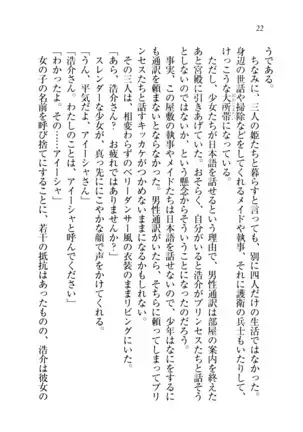 22
うである。
ちなみに、三人の姫たちと暮らすと言っても、別に四人だけの生活ではなかった。
身辺の世話や掃除などをしてくれるメイドや執事、それに護衛の兵士もいたりして、
けっこうな大所帯になっている。
ただ、少女たちが日本語を話せるという理由で、男性通訳は部屋の案内を終えた
あと宮殿に引きあげていた。おそらく、自分がいると浩介がプリンセスたちと話そう
としないのではないか、という懸念からそういうことになったのだろう。
事実、この屋敷の執事やメイドたちは日本語を話せないので、少年はなにをするに
も通訳しなくてはならなかった。男性通訳がいたら、そちらに頼ってしまってプリ
ンセスたちと話すキッカケがつかめないままになるかもしれない。
その三人は、相変わらずのベリーダンサー風の衣装のままリビングにいた。
スレンダーな少女が、真っ先ににこやかな顔で声をかけてくれる。
「あら、浩介さん？　お疲れではありませんか？」
「うん、平気だよ。アイーシャさん」
「浩介さん。わたしのことは、アイーシャと呼んでください」
「わかったよ。その……アイーシャ」
女の子の名前を呼び捨てにすることに、若干の抵抗はあったものの、浩介は彼女の